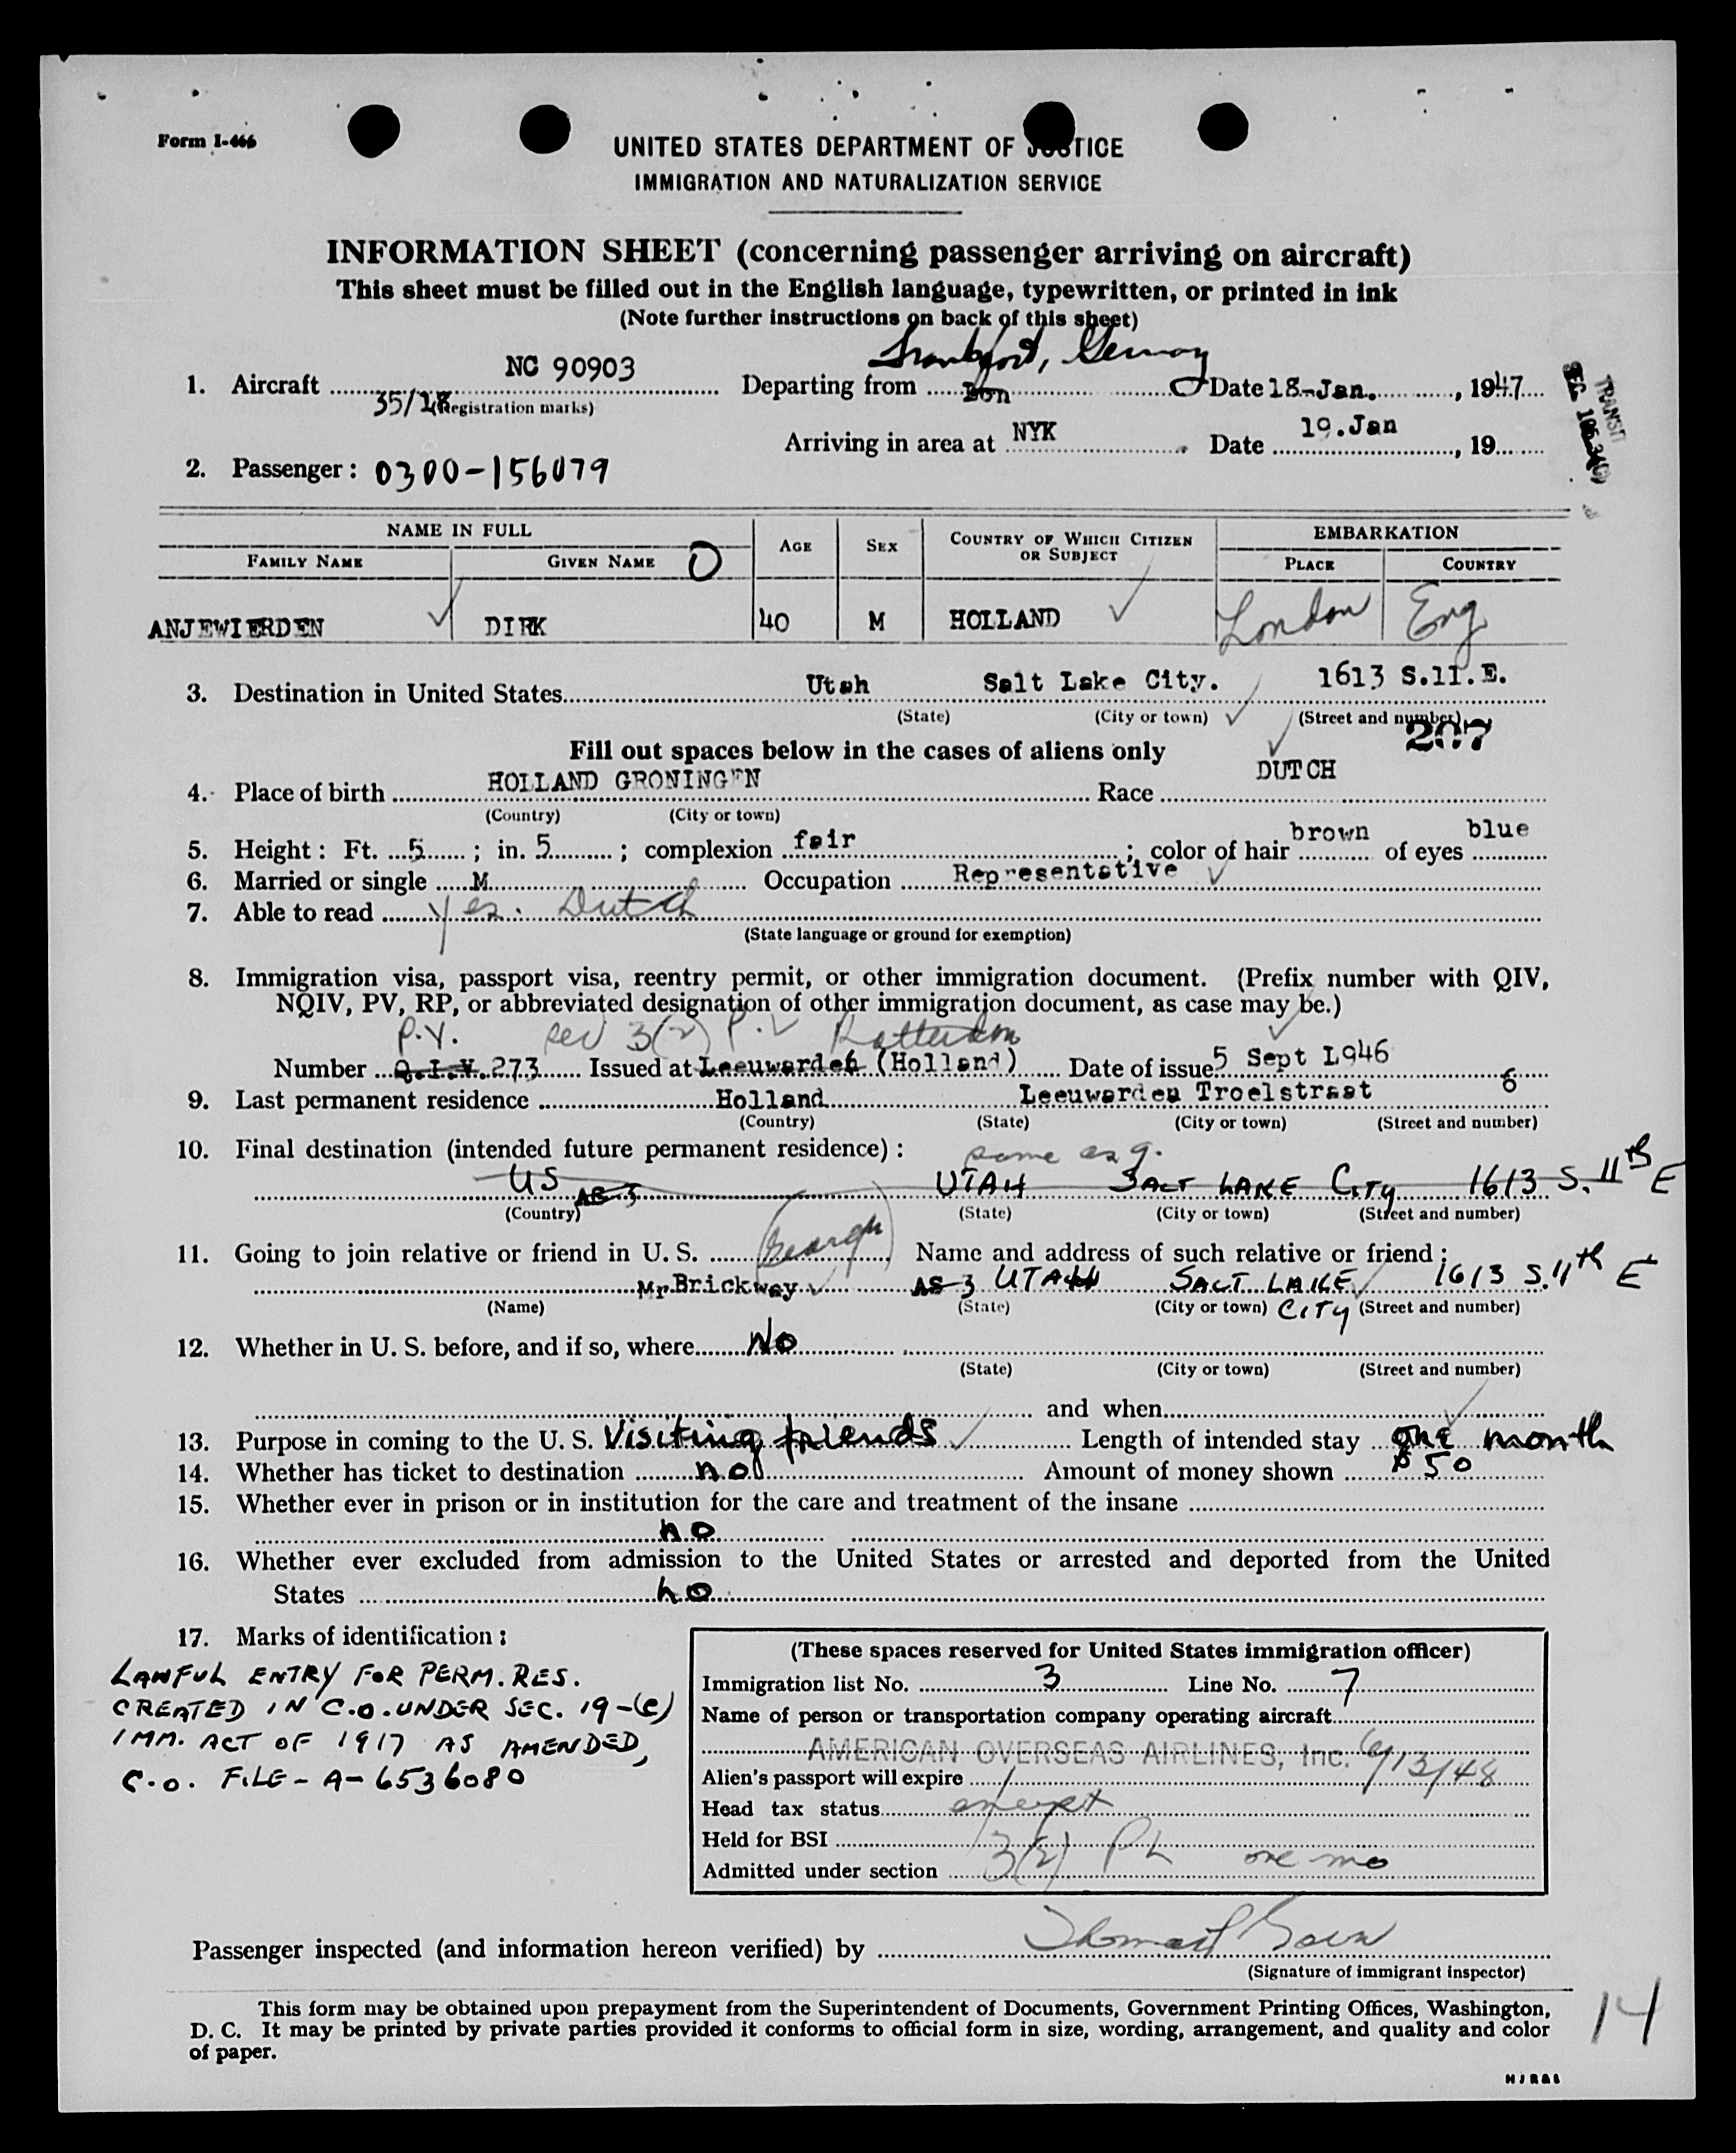 Form I-466
UNITED STATES DEPARTMENT OF JUSTICE
IMMIGRATION AND NATURALIZATION SERVICE
INFORMATION SHEET (concerning passenger arriving on aircraft)
This sheet must be filled out in the English language, typewritten, or printed in ink
(Note further instructions on back of this sheet)
Frankfort, Germany
1. Aircraft NC 90903 Departing from Lon Date 18-Jan. , 1947
35/28 (Registration marks)
TRANSIT
SEC.
Arriving in area at NYK Date 19.Jan , 19
2. Passenger : 0300-156079
NAME IN FULL AGE SEX COUNTRY OF WHICH CITIZEN OR SUBJECT EMBARKATION
FAMILY NAME GIVEN NAME O PLACE COUNTRY
ANJEWIERDEN DIRK 40 M HOLLAND London Eng
3. Destination in United States Utah Salt Lake City. 1613 S.11.E.
(State) (City or town) (Street and number)
207
Fill out spaces below in the cases of aliens only
4. Place of birth HOLLAND GRONINGEN Race DUTCH
(Country) (City or town)
5. Height : Ft. 5 ; in. 5 ; complexion fair ; color of hair brown of eyes blue
6. Married or single M Occupation Representative
7. Able to read Yes. Dutch
(State language or ground for exemption)
8. Immigration visa, passport visa, reentry permit, or other immigration document. (Prefix number with QIV,
NQIV, PV, RP, or abbreviated designation of other immigration document, as case may be.)
P.V. sec 3(2) P.V Rotterdam
Number Q.I.V. 273 Issued at Leeuwarden (Holland) Date of issue 5 Sept 1946
9. Last permanent residence Holland Leeuwarden Troelstraat 6
(Country) (State) (City or town) (Street and number)
10. Final destination (intended future permanent residence) : same as 9.
US AS 3 UTAH SALT LAKE CITY 1613 S. 11th E
(Country) (State) (City or town) (Street and number)
11. Going to join relative or friend in U. S. (George) Name and address of such relative or friend :
Mr Brickway AS 3 UTAH SALT LAKE 1613 S. 11th E
(Name) (State) (City or town) CITY (Street and number)
12. Whether in U. S. before, and if so, where No
(State) (City or town) (Street and number)
and when
13. Purpose in coming to the U. S. Visiting friends Length of intended stay one month
14. Whether has ticket to destination no Amount of money shown $ 50
15. Whether ever in prison or in institution for the care and treatment of the insane
no
16. Whether ever excluded from admission to the United States or arrested and deported from the United
States no
17. Marks of identification :
LAWFUL ENTRY FOR PERM. RES.
CREATED IN C.O. UNDER SEC. 19-(c)
IMM. ACT OF 1917 AS AMENDED,
C.O. FILE - A-6536080
(These spaces reserved for United States immigration officer)
Immigration list No. 3 Line No. 7
Name of person or transportation company operating aircraft
AMERICAN OVERSEAS AIRLINES, Inc.
Alien's passport will expire 6/13/48
Head tax status exempt
Held for BSI
Admitted under section 3(2) one mo
Passenger inspected (and information hereon verified) by
(Signature of immigrant inspector)
This form may be obtained upon prepayment from the Superintendent of Documents, Government Printing Offices, Washington,
D. C. It may be printed by private parties provided it conforms to official form in size, wording, arrangement, and quality and color
of paper.
14